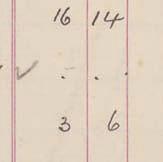 16 14
✓ . . .
3 6